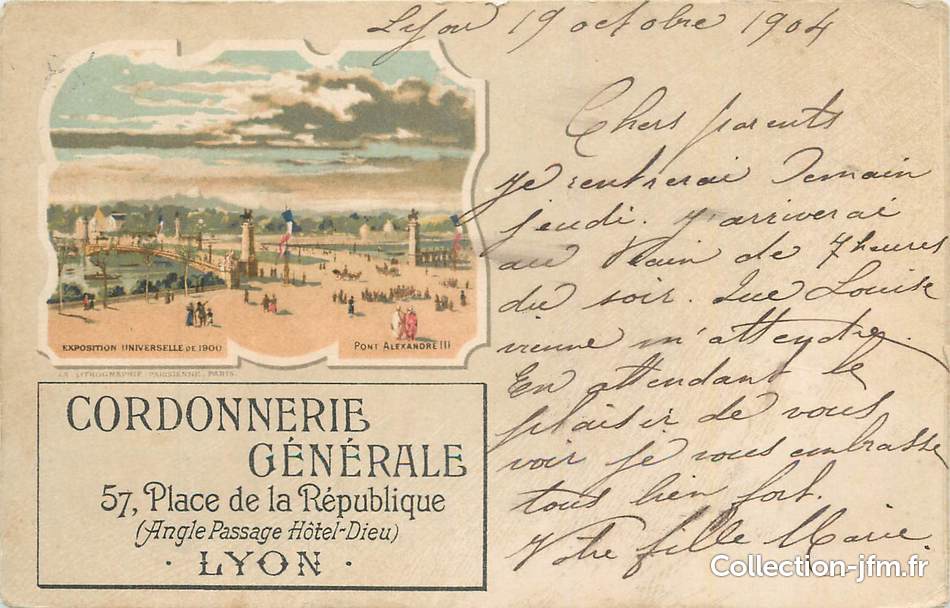 Lyon 19 octobre 1904
Chers parents
je rentrerai Demain
jeudi. J'arriverai
au train de 7 heures
du soir. Que Louise
vienne m'attendre.
En attendant le
plaisir de vous
voir je vous embrasse
tous bien fort.
Votre fille Marie.
EXPOSITION UNIVERSELLE DE 1900
PONT ALEXANDRE III
LA LITHOGRAPHIE PARISIENNE, PARIS.
CORDONNERIE
GÉNÉRALE
57, Place de la République
(Angle Passage Hôtel-Dieu)
· LYON ·
Collection-jfm.fr